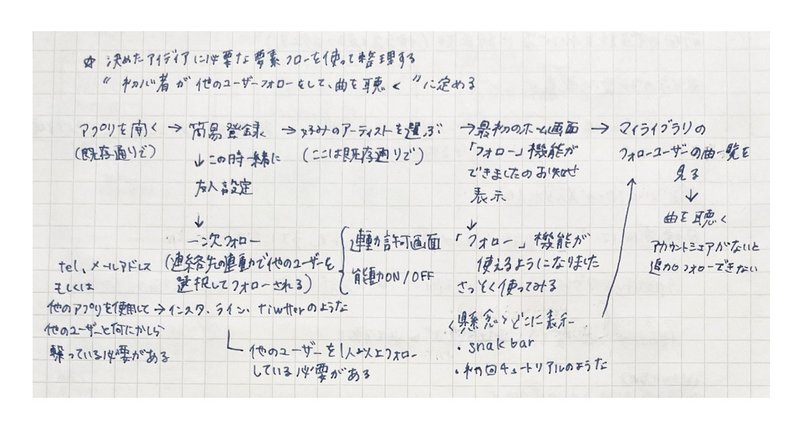 ☆ 決めたアイディアに必要な要素フローを使って整理する
"初心者が他のユーザーフォローをして、曲を聴く"に定める
アプリを開く → 簡易登録 → 好みのアーティストを選ぶ → 最初のホーム画面 → マイライブラリの
(既存通りで) ↓この時一緒に (ここは既存通りで) 「フォロー」機能が フォローユーザーの曲一覧を
友人設定 できましたのお知らせ 見る
表示 ↓
↓ ↓ 曲を聴く
一次フォロー 連動許可画面 「フォロー」機能が アカウントシェアがないと
tel、メールアドレス (連絡先の連動で他のユーザーを 使えるようになりました 追加フォローできない
もしくは 選択してフォローされる) 能動ON/OFF さっそく使ってみる
他のアプリを使用して → インスタ、ライン、tiwtterのような
他のユーザーと何だかしら 〈懸念〉どこに表示
繋っている必要がある ・snakbar
他のユーザーを1人以上フォロー ・初回チュートリアルのような
している必要がある